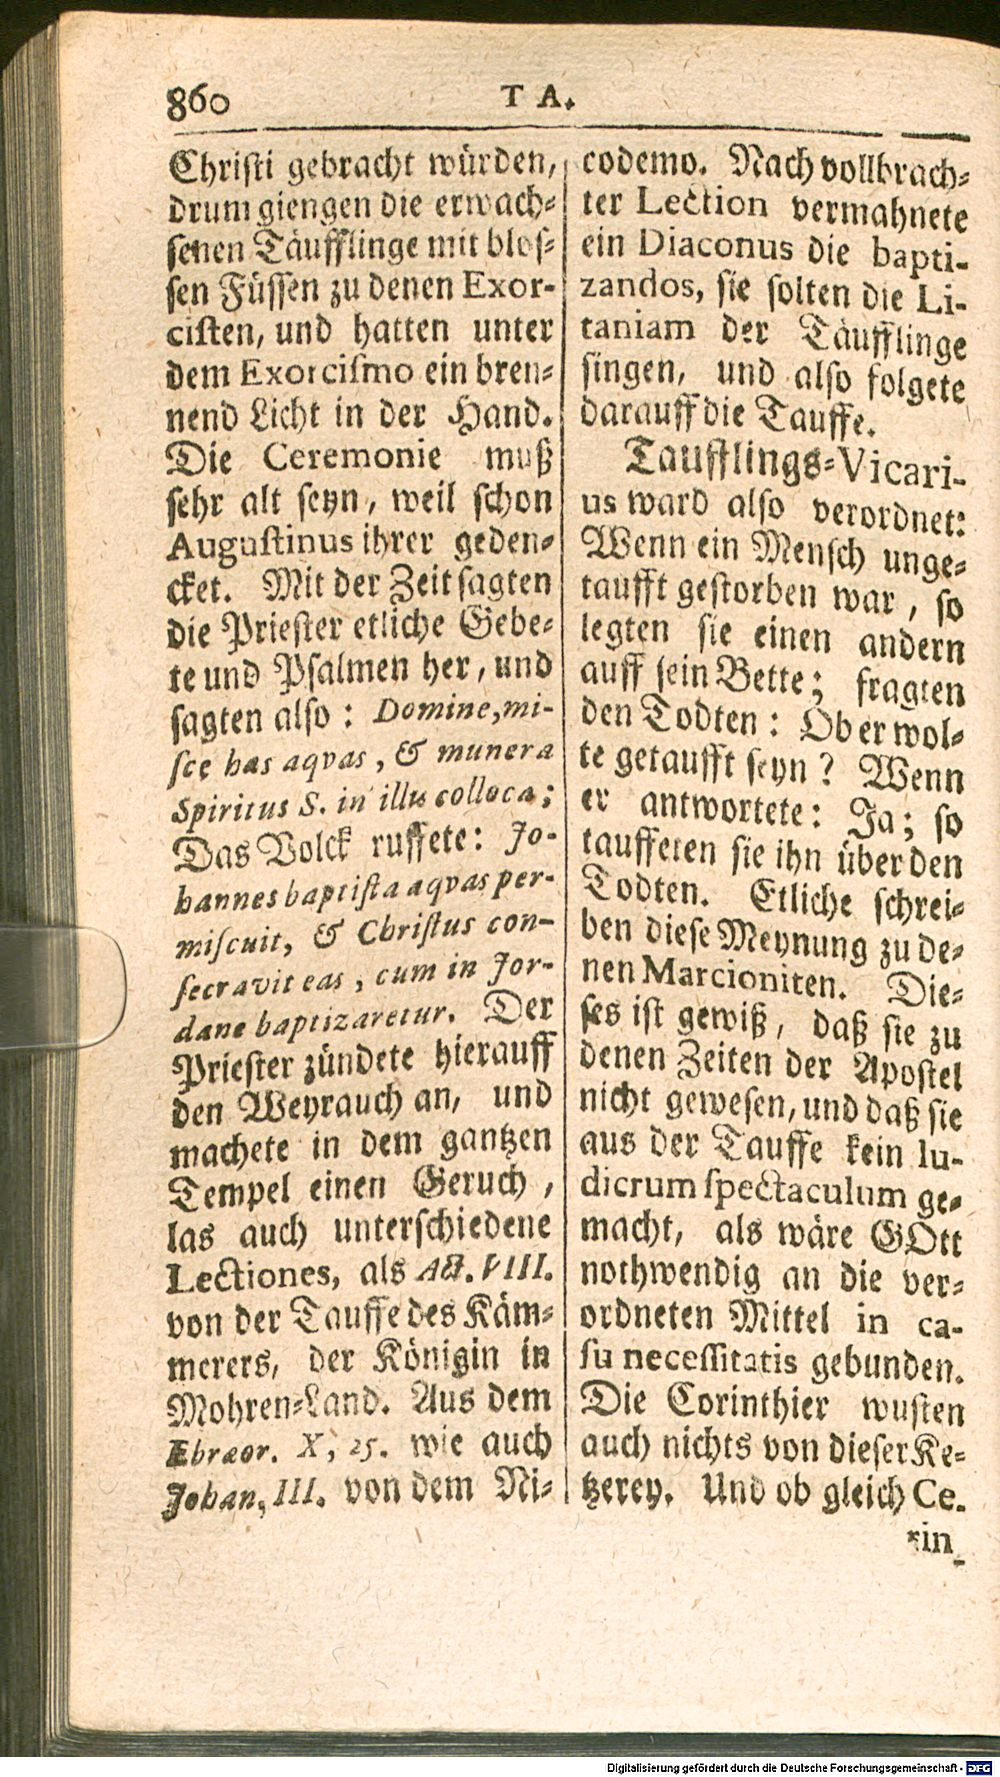 860
T A.
Chriſti gebracht würden,
drum giengen die erwach⸗
ſenen Täufflinge mit bloſ⸗
ſen Füſſen zu denen Exor-
ciſten, und hatten unter
dem Exorciſmo ein bren⸗
nend Licht in der Hand.
Die Ceremonie muß
ſehr alt ſeyn, weil ſchon
Auguſtinus ihrer geden⸗
cket. Mit der Zeit ſagten
die Prieſter etliche Gebe⸗
te und Pſalmen her, und
ſagten alſo: Domine, mi-
ſce has aqvas, & munera
Spiritus S. in illis colloca;
Das Volck ruffete: Jo-
hannes baptiſta aqvas per-
miſcuit, & Chriſtus con-
ſecravit eas, cum in Jor-
dane baptizaretur. Der
Prieſter zündete hierauff
den Weyrauch an, und
machete in dem gantzen
Tempel einen Geruch,
las auch unterſchiedene
Lectiones, als Act. VIII.
von der Tauffe des Käm⸗
merers, der Königin in
Mohren⸗Land. Aus dem
Ebræor. X, 25. wie auch
Johan, III. von dem Ni⸗
codemo. Nach vollbrach⸗
ter Lection vermahnete
ein Diaconus die bapti-
zandos, ſie ſolten die Li-
taniam der Täufflinge
ſingen, und alſo folgete
darauff die Tauffe.
Taufflings⸗Vicari-
us ward alſo verordnet:
Wenn ein Menſch unge⸗
taufft geſtorben war, ſo
legten ſie einen andern
auff ſein Bette; fragten
den Todten: Ob er wol⸗
te getaufft ſeyn? Wenn
er antwortete: Ja; ſo
tauffeten ſie ihn über den
Todten. Etliche ſchrei⸗
ben dieſe Meynung zu de⸗
nen Marcioniten. Die⸗
ſes iſt gewiß, daß ſie zu
denen Zeiten der Apoſtel
nicht geweſen, und daß ſie
aus der Tauffe kein lu-
dicrum ſpectaculum ge⸗
macht, als wäre GOtt
nothwendig an die ver⸗
ordneten Mittel in ca-
ſu neceſſitatis gebunden.
Die Corinthier wuſten
auch nichts von dieſer Ke⸗
tzerey. Und ob gleich Ce-
rin-
Digitalisierung gefördert durch die Deutsche Forschungsgemeinschaft - DFG